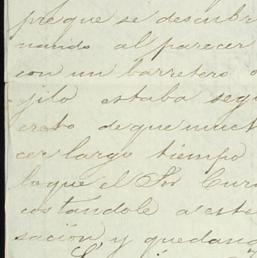 pre que se descubr
nando al parecer
con un barretero
jilo estaba seg
creto de que much
cer largo tiempo
lo que el Sor Cura
costandole a este
sación y quedand